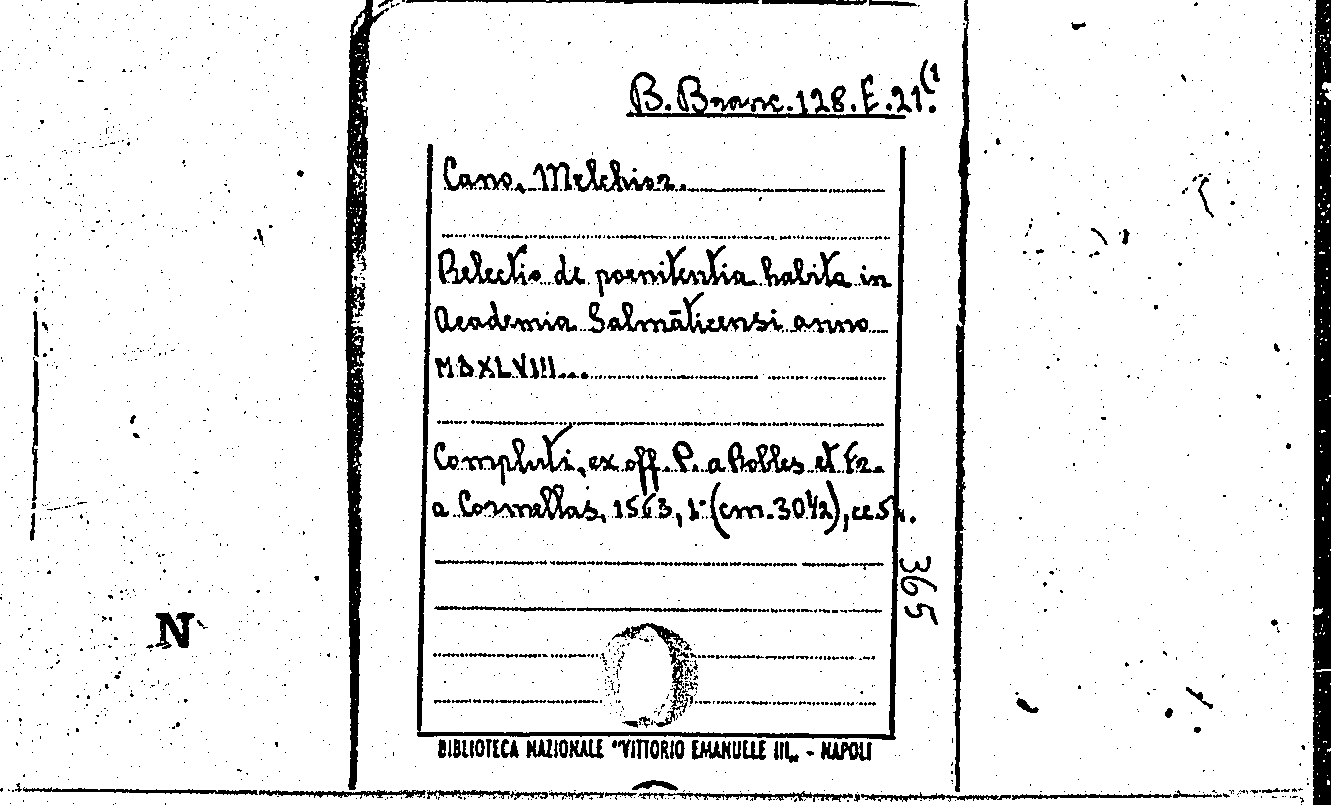 B. Branc. 128. E. 21.(1
Cano, Melchior.
Relectio de poenitentia habita in
Academia Salmāticensi anno
MDXLVIII...
Compluti, ex off. P. a Robles et Fr.
a Cormellas, 1563, (cm. 30½), cc.
365
N
BIBLIOTECA NAZIONALE "VITTORIO EMANUELE III„ - NAPOLI